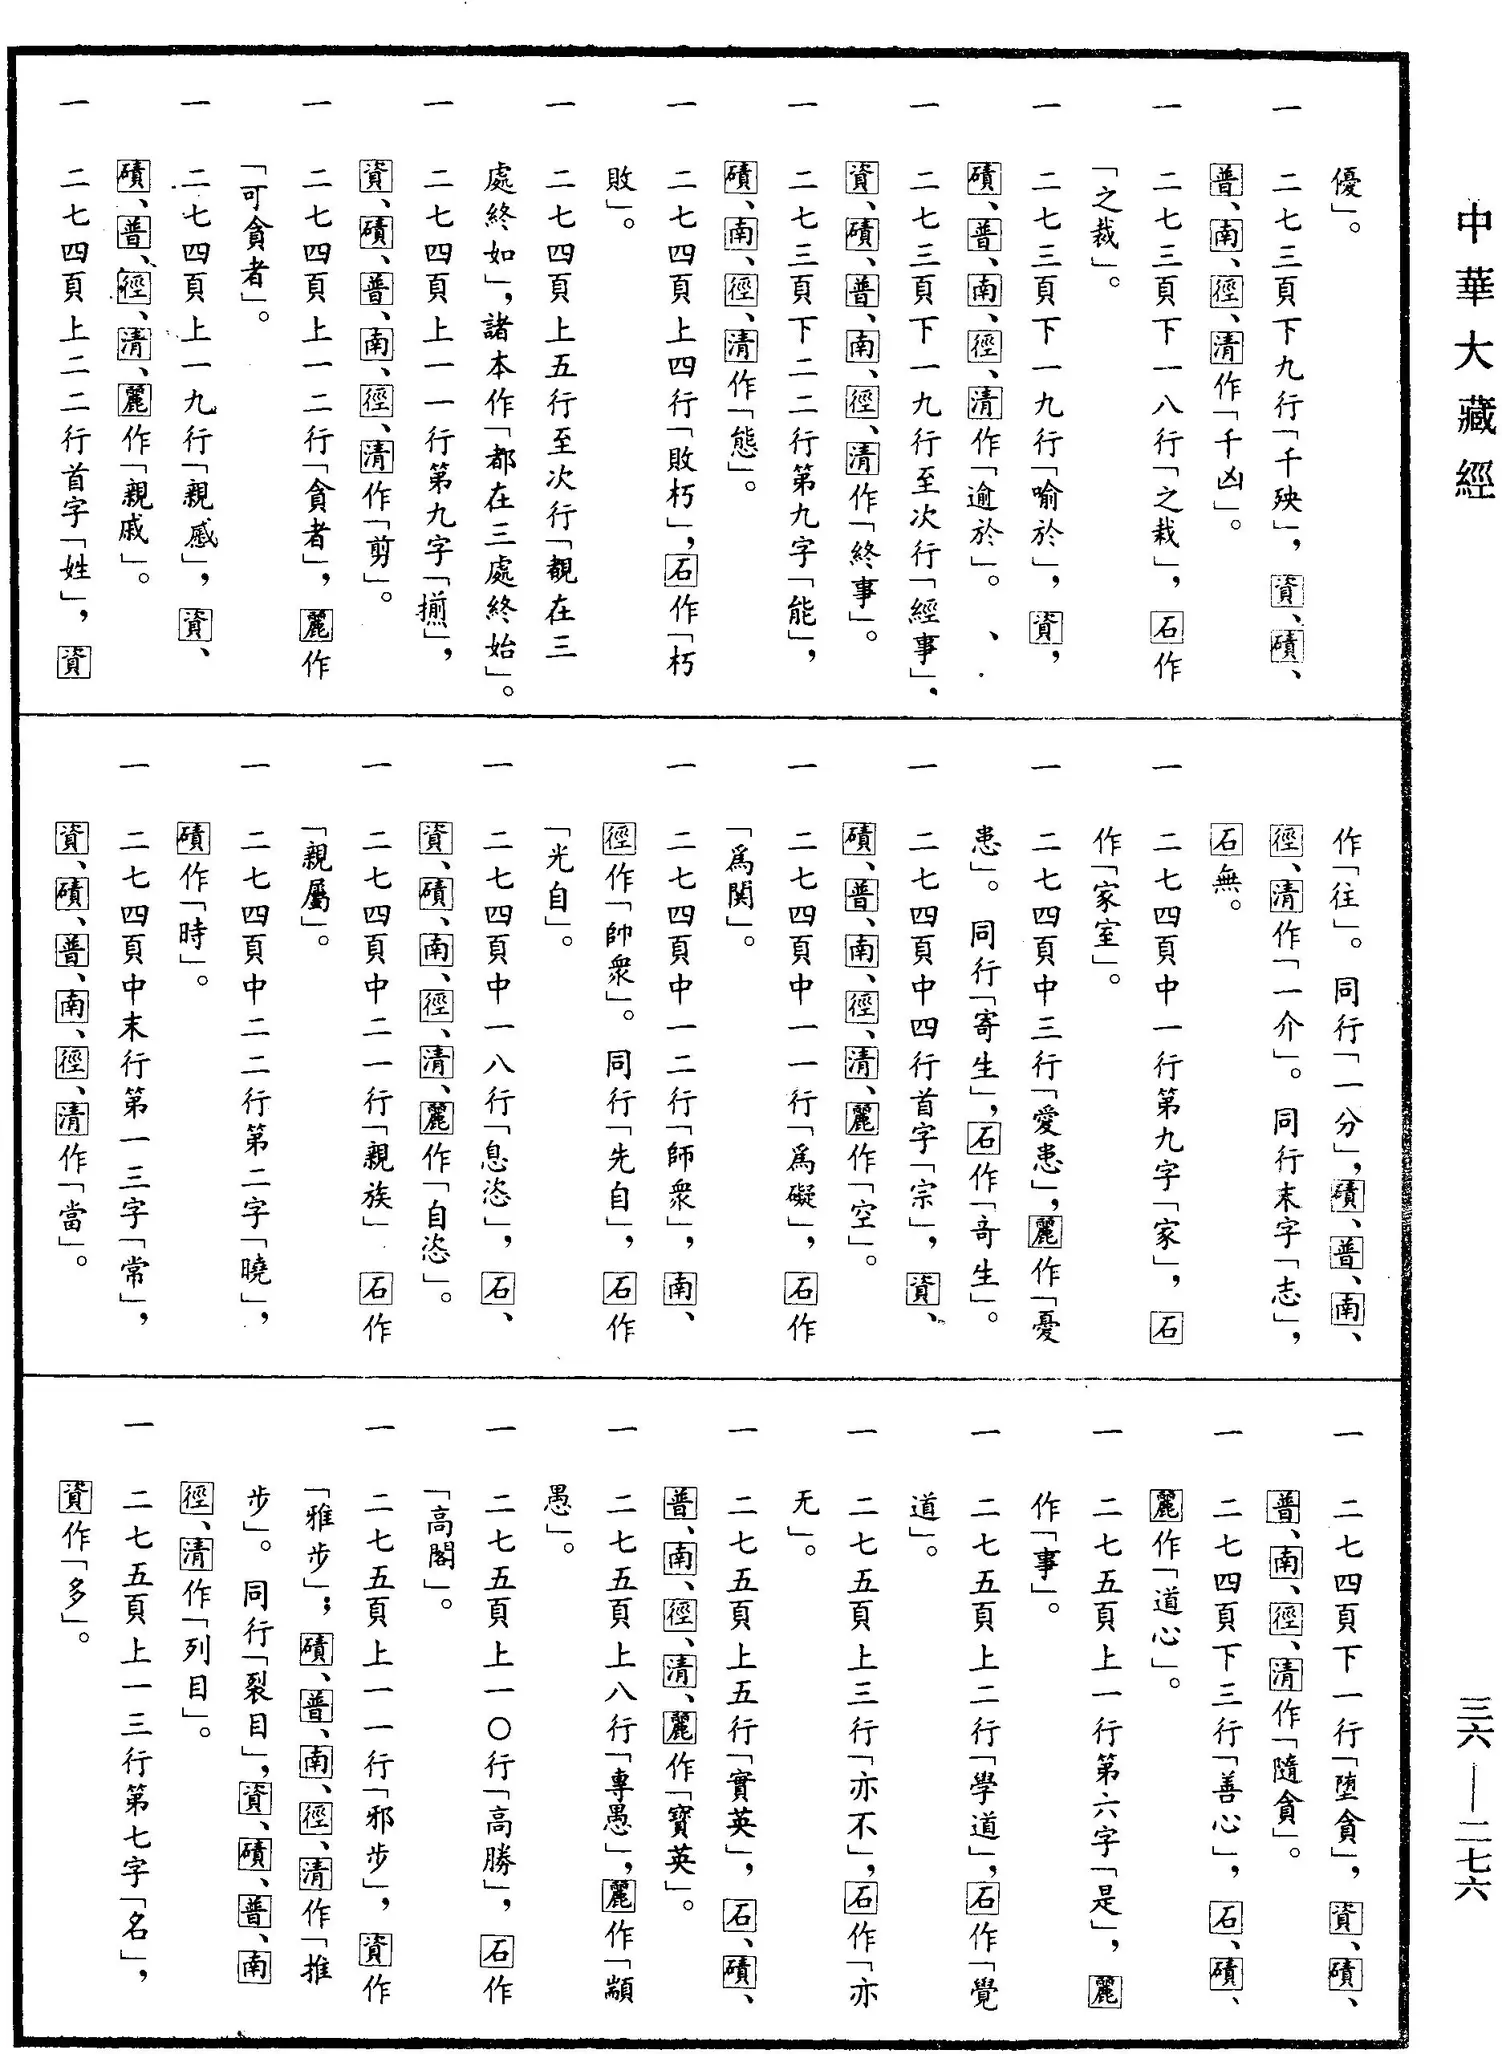 中華大藏經
三六——二七六
優」。
一 二七三頁下九行「千殃」，資、磧、
普、南、徑、清作「千凶」。
一 二七三頁下一八行「之栽」，石作
「之裁」。
一 二七三頁下一九行「喻於」，資，
磧、普、南、徑、清作「逾於」。
一 二七三頁下一九行至次行「經事」，
資、磧、普、南、徑、清作「終事」。
一 二七三頁下二二行第九字「能」，
磧、南、徑、清作「態」。
一 二七四頁上四行「敗朽」，石作「朽
敗」。
一 二七四頁上五行至次行「覩在三
處終如」，諸本作「都在三處終始」。
一 二七四頁上一一行第九字「揃」，
資、磧、普、南、徑、清作「剪」。
一 二七四頁上一二行「貪者」，麗作
「可貪者」。
一 二七四頁上一九行「親慼」，資、
磧、普、徑、清、麗作「親戚」。
一 二七四頁上二二行首字「姓」，資
作「往」。同行「一分」，磧、普、南、
徑、清作「一介」。同行末字「志」，
石無。
一 二七四頁中一行第九字「家」，石
作「家室」。
一 二七四頁中三行「愛患」，麗作「憂
患」。同行「寄生」，石作「竒生」。
一 二七四頁中四行首字「宗」，資、
磧、普、南、徑、清、麗作「空」。
一 二七四頁中一一行「爲礙」，石作
「爲閡」。
一 二七四頁中一二行「師衆」，南、
徑作「帥衆」。同行「先自」，石作
「光自」。
一 二七四頁中一八行「息恣」，石、
資、磧、南、徑、清、麗作「自恣」。
一 二七四頁中二一行「親族」石作
「親屬」。
一 二七四頁中二二行第二字「曉」，
磧作「時」。
一 二七四頁中末行第一三字「常」，
資、磧、普、南、徑、清作「當」。
一 二七四頁下一行「堕貪」，資、磧、
普、南、徑、清作「隨貪」。
一 二七四頁下三行「善心」，石、磧、
麗作「道心」。
一 二七五頁上一行第六字「是」，麗
作「事」。
一 二七五頁上二行「學道」，石作「覺
道」。
一 二七五頁上三行「亦不」，石作「亦
无」。
一 二七五頁上五行「實英」，石、磧、
普、南、徑、清、麗作「寶英」。
一 二七五頁上八行「專愚」，麗作「顓
愚」。
一 二七五頁上一〇行「高勝」，石作
「高閣」。
一 二七五頁上一一行「邪步」，資作
「雅步」；磧、普、南、徑、清作「推
步」。同行「裂目」，資、磧、普、南
徑、清作「列目」。
一 二七五頁上一三行第七字「名」，
資作「多」。